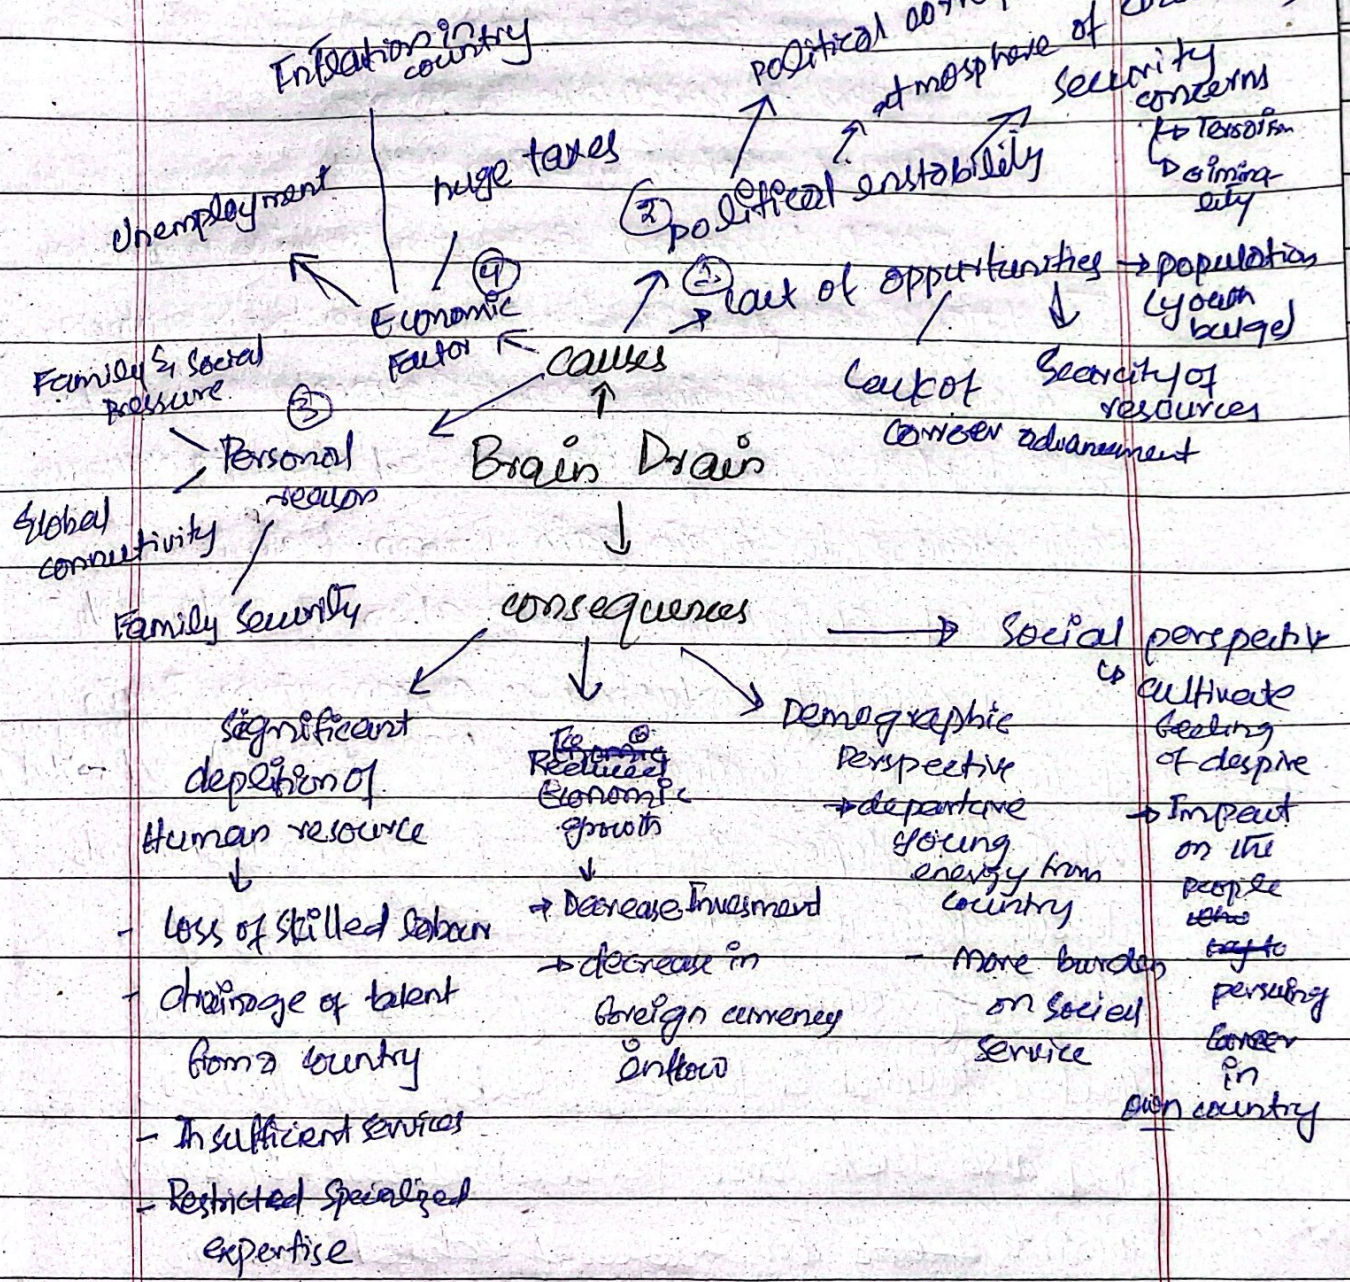 Inflation in
country
political
atmosphere of
security
concerns
↳ Terroism
↳ criminality
huge taxes
Unemployment
② political enstability
① lack of oppurtunities → population
↳ youth
bulge
④
Economic
Factor
causes
Lack of
carrier advancement
Scarcity of
resources
Family & Social
pressure
③
Personal
reason
Brain Drain
Global
connectivity
Family Security
consequences
→ Social perspectiv
↳ cultivate
feeling
of despire
→ Impact
on the
people
persuing
career
in
own country
significant
depletion of
Human resource
- Loss of skilled labour
- drainage of talent
from a country
- Insufficient services
- Restricted specialized
expertise
Reduced
Economic
growth
→ Decrease Invesment
→ decrease in
foreign currency
inflow
Demographic
Perspective
→ departure
young
energy from
country
- more burden
on social
service